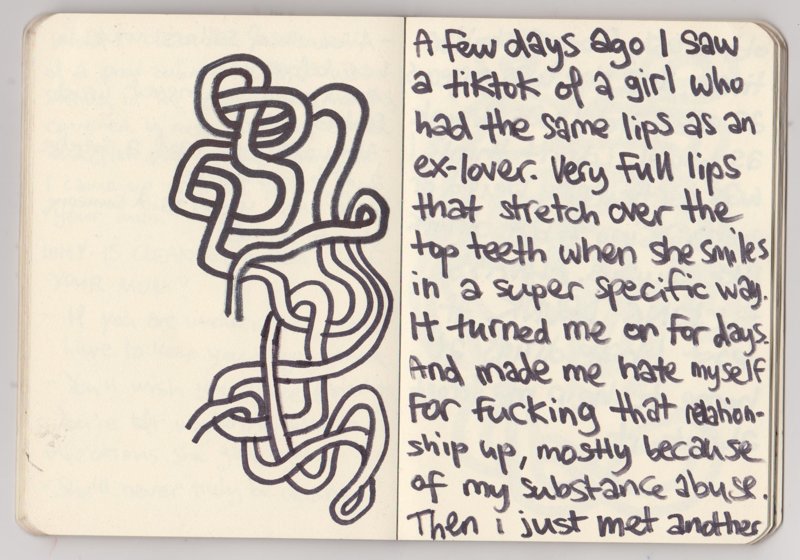 A few days ago I saw
a tiktok of a girl who
had the same lips as an
ex-lover. Very full lips
that stretch over the
top teeth when she smiles
in a super specific way.
It turned me on for days.
And made me hate myself
for fucking that relation-
ship up, mostly because
of my substance abuse.
Then i just met another